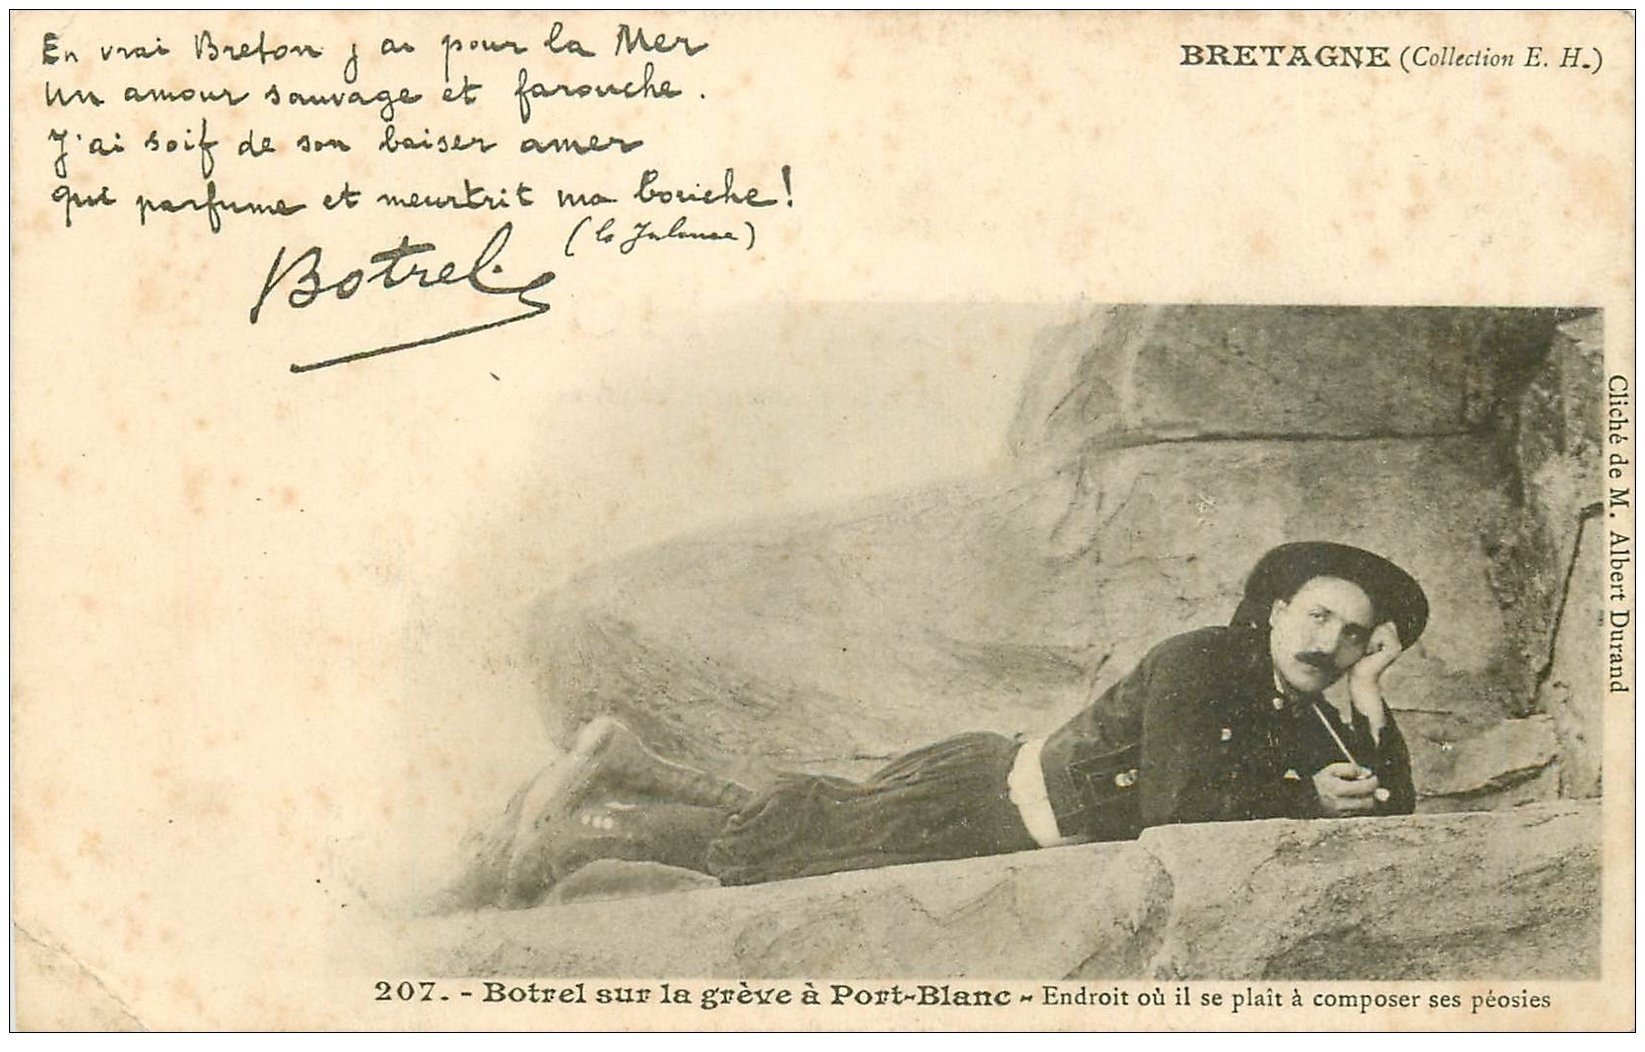 En vrai Breton j'ai pour la Mer
Un amour sauvage et farouche.
J'ai soif de son baiser amer
qui parfume et meurtrit ma bouche!
(la Jalouse)
Botrel
BRETAGNE (Collection E. H.)
Cliché de M. Albert Durand
207. - Botrel sur la grève à Port-Blanc - Endroit où il se plaît à composer ses péosies